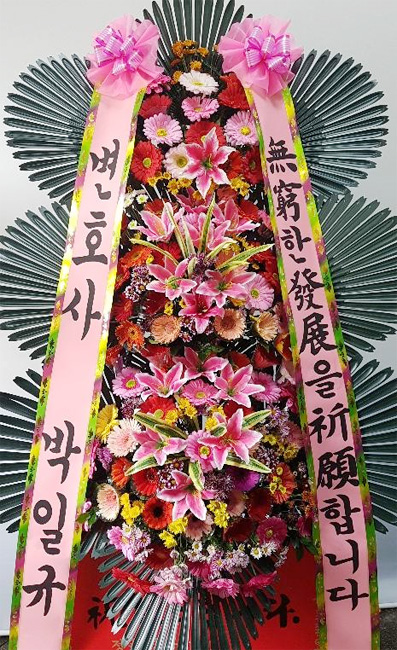 변호사 박일규
無窮한 發展을 祈願합니다
祝